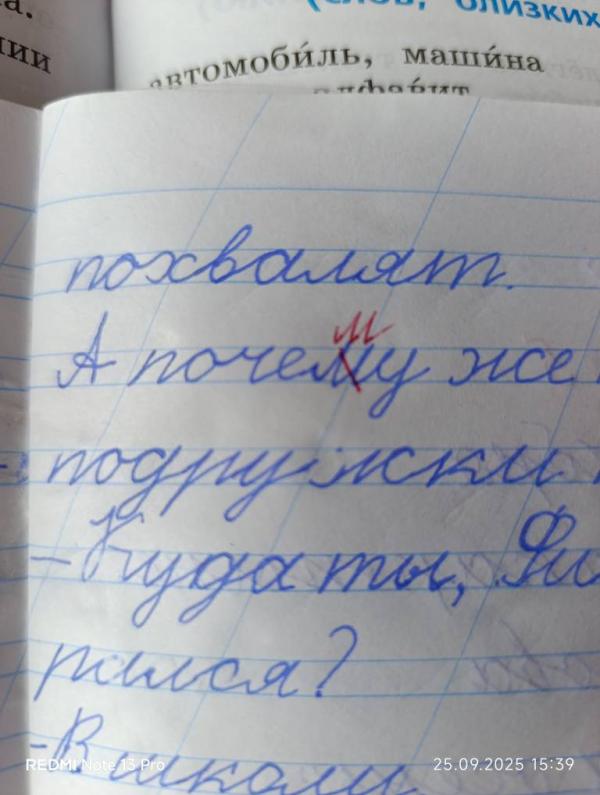 а.
нии
(слов, близких
автомоби́ль, маши́на
алфави́т
похвалят.
м
А почему же
подружки
– Куда ты, Фи
рался?
- В школу
REDMI Note 13 Pro
25.09.2025 15:39